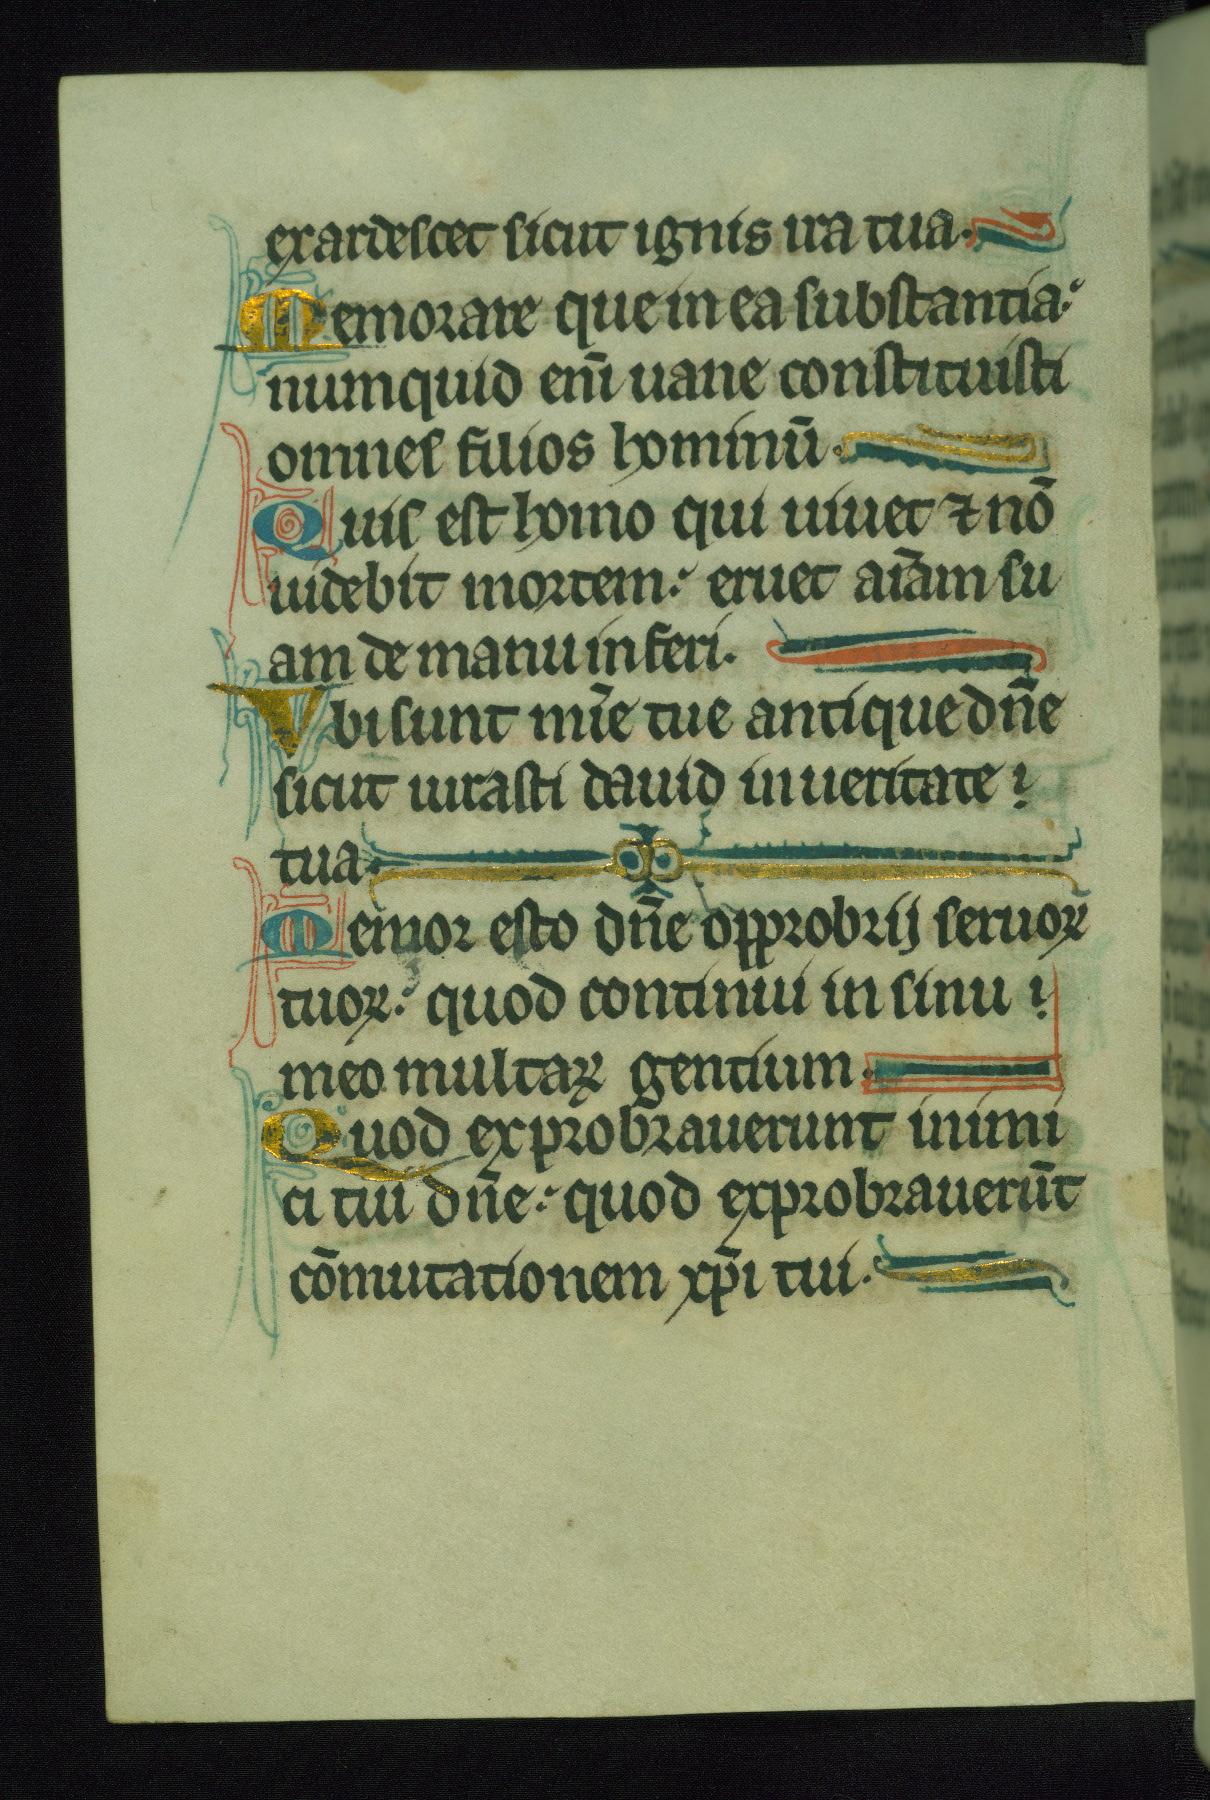 exardescet sicut ignis ira tua.
Memorare que in ea substantia:
numquid eni̅ uane constituisti
omnes filios hominu̅.
Quis est homo qui uiuet ⁊ no̅
uidebit mortem: eruet ai̅am su
am de manu inferi.
Vbi sunt mi̅e tue antique dn̅e
sicut iurasti dauid in ueritate
tua.
Memor esto dn̅e opprobrij seruoꝝ
tuoꝝ: quod continui in sinu
meo multaꝝ gentium.
Quod exprobrauerunt inimi
ci tui dn̅e: quod exprobraueru̅t
co̅mutationem xp̅i tui.